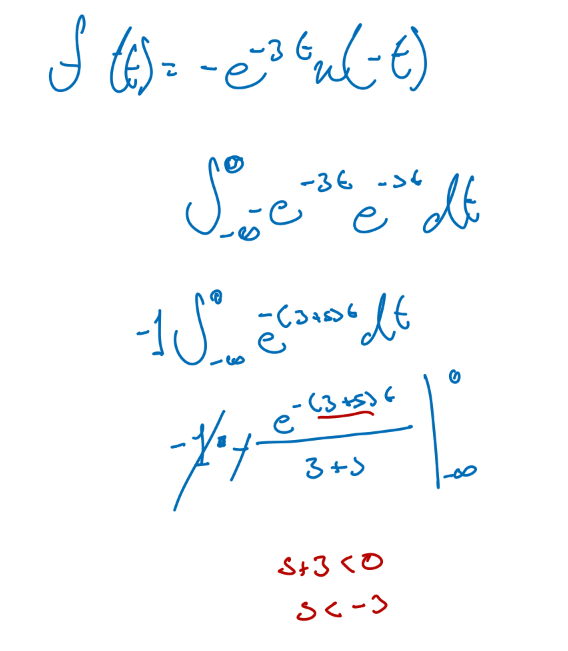 f(t) = -e^{-3t}u(-t)
∫_{-∞}^{0} -e^{-3t} e^{-st} dt
-1 ∫_{-∞}^{0} e^{-(3+s)t} dt
-1 · -\frac{e^{-(3+s)t}}{3+s} |_{-∞}^{0}
s+3 < 0
s < -3